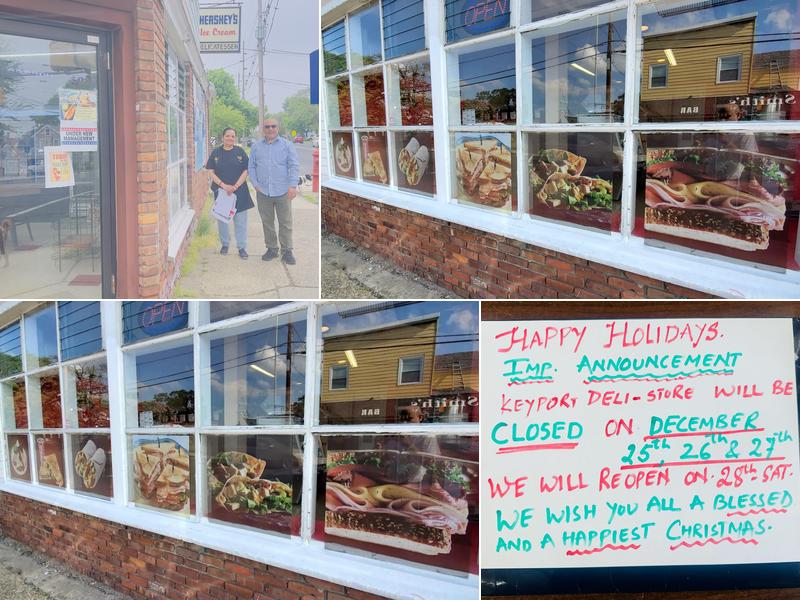 HERSHEY'S
Ice Cream
DELICATESSEN
UNDER NEW
MANAGEMENT
OPEN
BAR
Smith's
OPEN
BAR
Smith's
HAPPY HOLIDAYS.
IMP. ANNOUNCEMENT
KEYPORT DELI-STORE WILL BE
CLOSED ON DECEMBER
25th, 26th & 27th
WE WILL REOPEN ON 28th SAT.
WE WISH YOU ALL A BLESSED
AND A HAPPIEST CHRISTMAS.